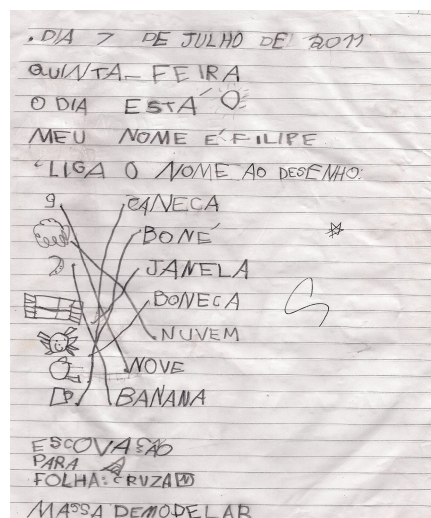 . DIA 7 DE JULHO DE 2011
QUINTA-FEIRA
O DIA ESTÁ
MEU NOME É FILIPE
LIGA O NOME AO DESENHO:
9 CANECA
BONÉ
JANELA
BONECA
NUVEM
NOVE
BANANA
ESCOVAÇÃO
PARA
FOLHA: CRUZA
MASSA DEMODELAR